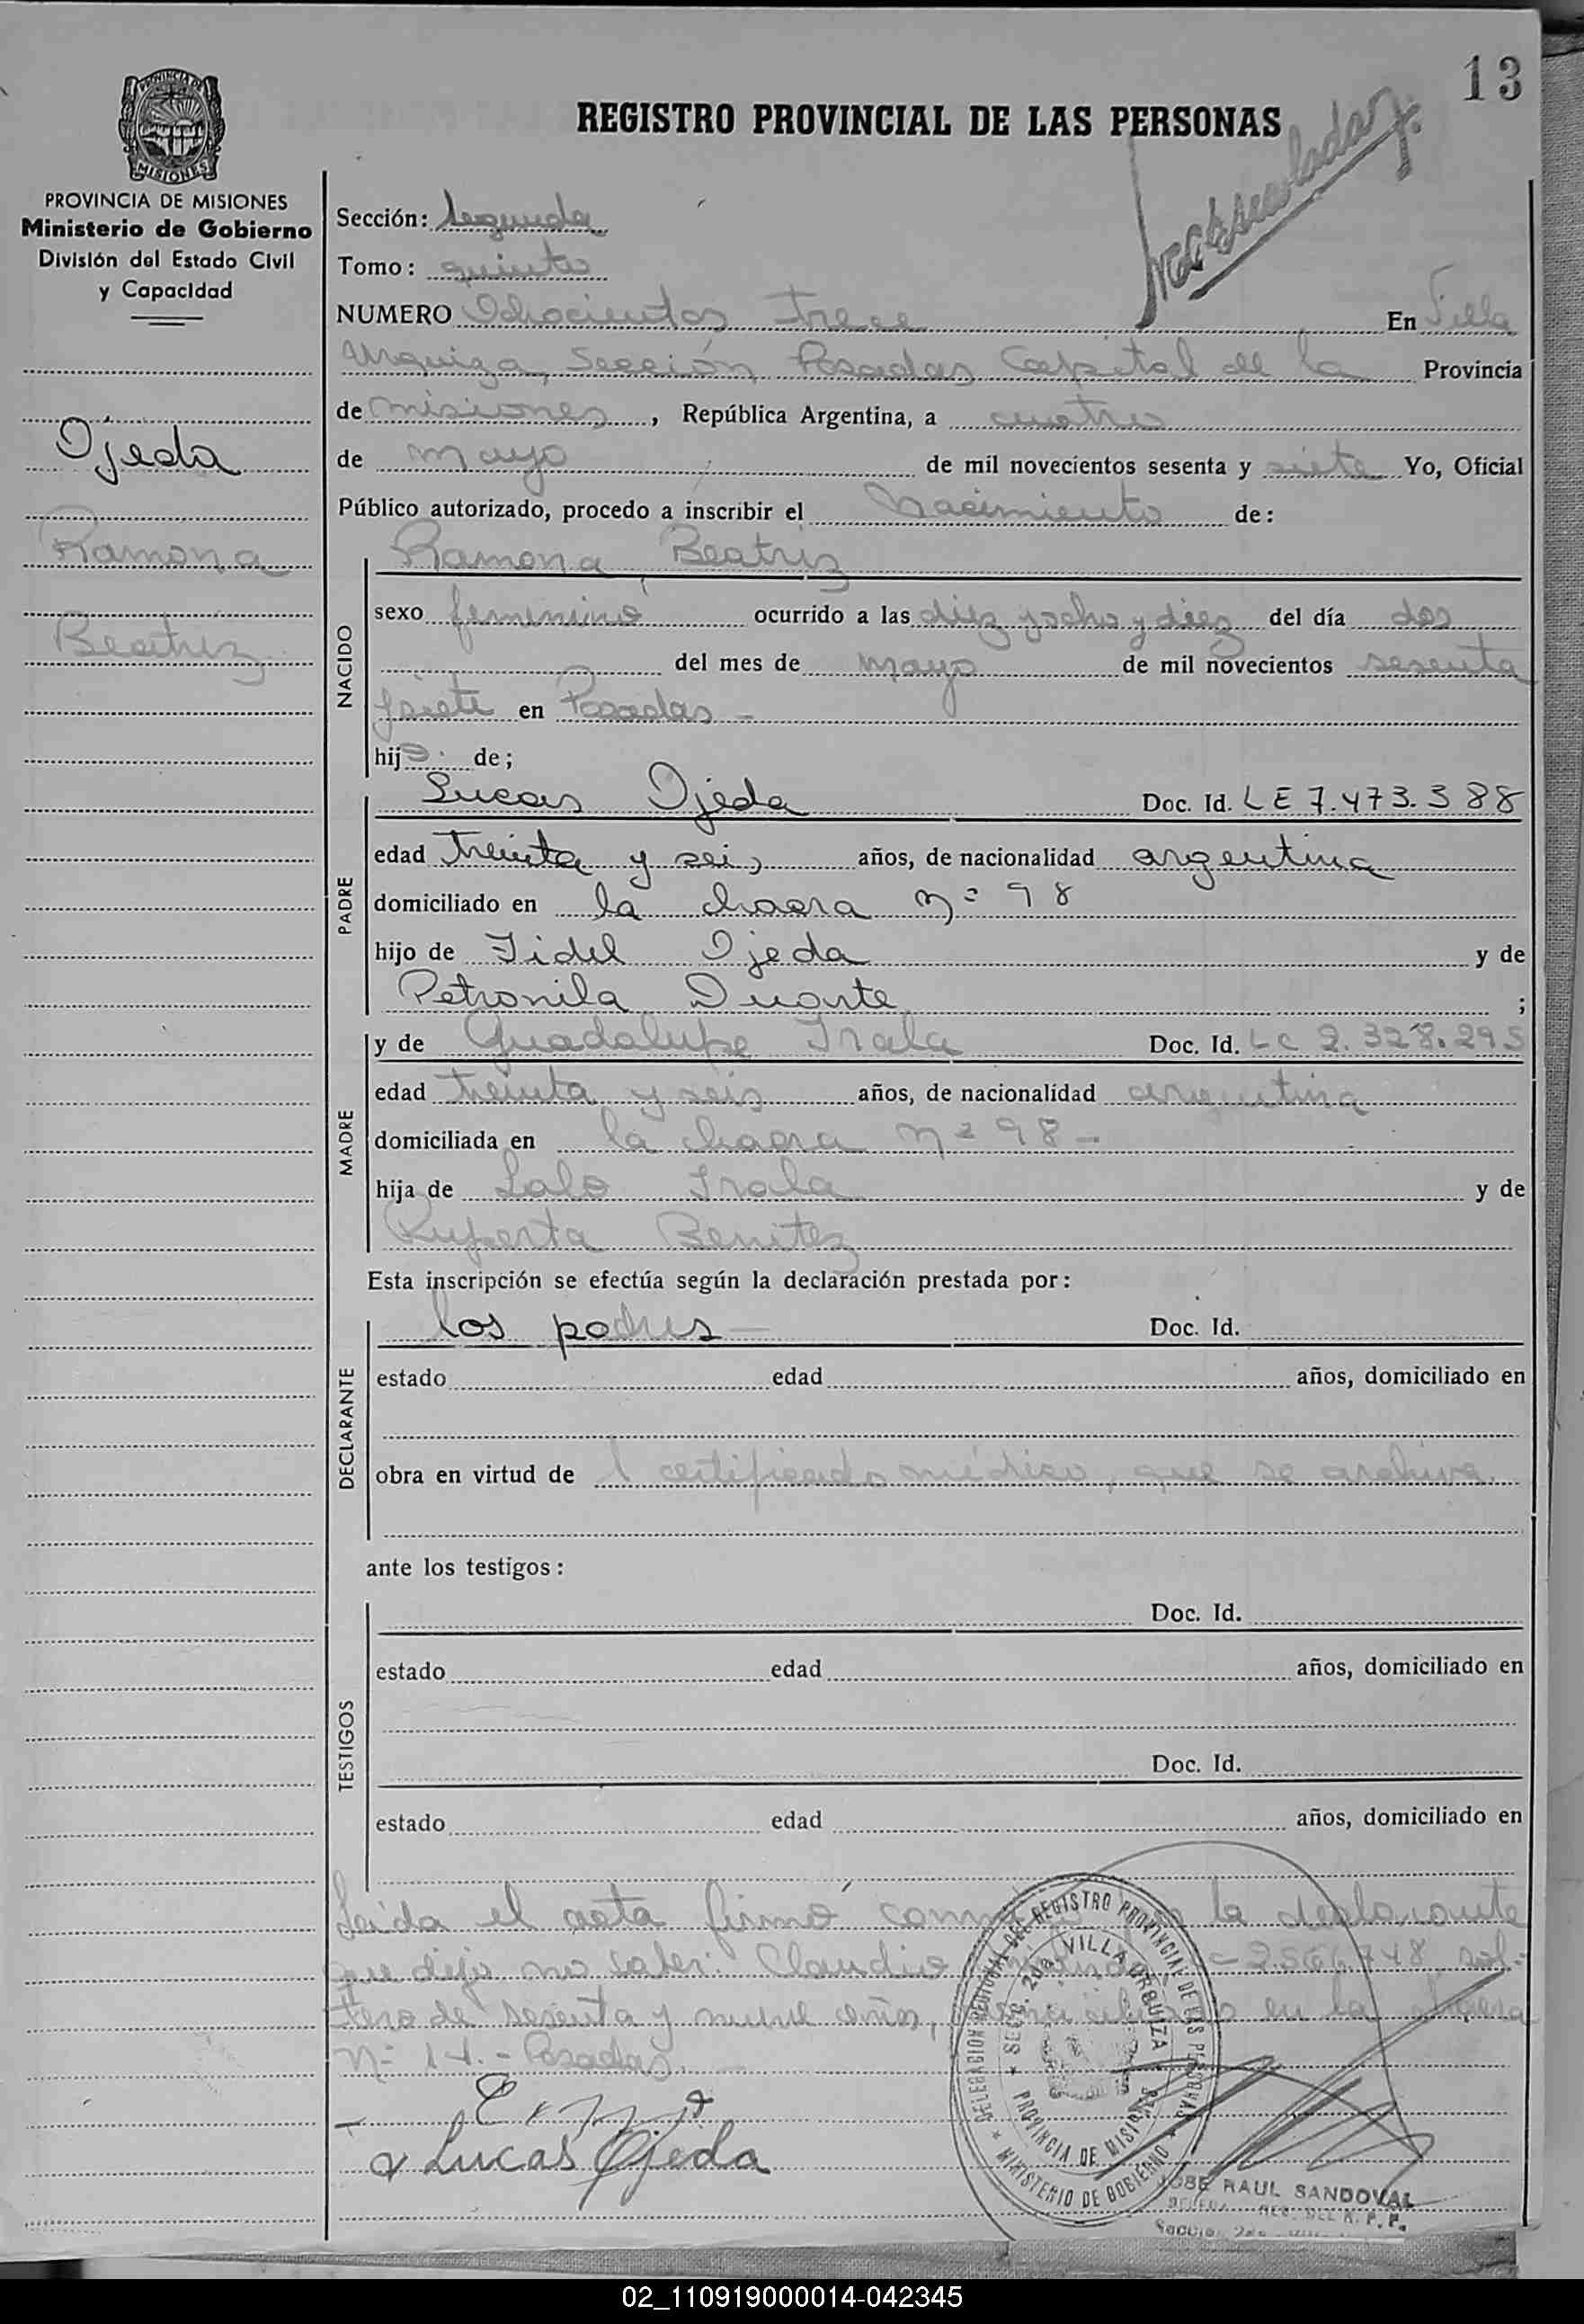 13
REGISTRO PROVINCIAL DE LAS PERSONAS
PROVINCIA DE
MISIONES
PROVINCIA DE MISIONES
Ministerio de Gobierno
División del Estado Civil
y Capacidad
Ojeda
Ramona
Beatriz
Sección: Segunda
Tomo: quinto
NUMERO Ochocientos trece En Villa
Urquiza, Sección, Posadas Capital de la Provincia
de misiones, República Argentina, a cuatro
de mayo de mil novecientos sesenta y siete Yo, Oficial
Público autorizado, procedo a inscribir el nacimiento de:
NACIDO
Ramona Beatriz
sexo femenino ocurrido a las diez y ocho y diez del día dos
del mes de mayo de mil novecientos sesenta
y siete en Posadas -
hija de;
PADRE
Lucas Ojeda Doc. Id. LE 7.473.388
edad treinta y seis años, de nacionalidad argentina
domiciliado en la chacra nº 98
hijo de Fidel Ojeda y de
Petronila Duarte ;
MADRE
y de Guadalupe Irala Doc. Id. LC 2.328.295
edad treinta y seis años, de nacionalidad argentina
domiciliada en la chacra nº 98 -
hija de Lalo Irala y de
Ruperta Benitez
Esta inscripción se efectúa según la declaración prestada por:
DECLARANTE
los padres - Doc. Id.
estado edad años, domiciliado en
obra en virtud de l certificado médico, que se archiva.
ante los testigos:
TESTIGOS
Doc. Id.
estado edad años, domiciliado en
Doc. Id.
estado edad años, domiciliado en
Leída el acta firmó la declarante
que dijo no saber: Claudio sol-
tero de sesenta y nueve años, en la chacra
Nº 14.- Posadas.
Lucas Ojeda
DELEGACION REGIONAL DEL REGISTRO PROVINCIAL DE LAS PERSONAS
MINISTERIO DE GOBIERNO
SECC. 2da VILLA URQUIZA
PROVINCIA DE MISIONES
JOSE RAUL SANDOVAL
02_110919000014-042345